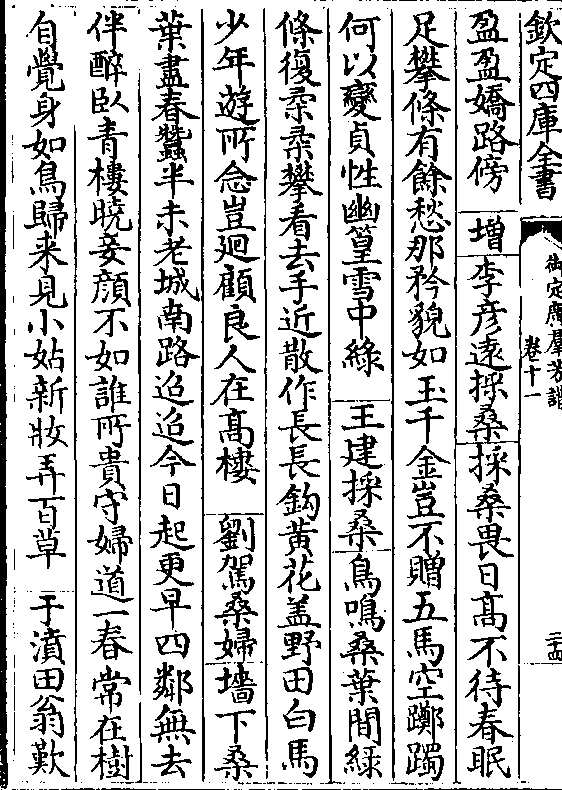 欽定四庫全書
御定廣羣芳譜
卷十一
二十四
盈盈嬌路傍　增　李彦遠採桑　採桑畏日髙不待春眠
足攀條有餘愁那矜貌如玉千金豈不贈五馬空躑躅
何以變貞性幽篁雪中綠　王建採桑　鳥鳴桑葉間綠
條復柔柔攀看去手近散作長長鈎黄花盖野田白馬
少年遊所念豈廻顧良人在髙樓　劉駕桑婦　墻下桑
葉盡春蠶半未老城南路迢迢今日起更早四鄰無去
伴醉臥青樓曉妾顔不如誰所貴守婦道一春常在樹
自覺身如鳥歸来見小姑新妝弄百草　于濆田翁歎